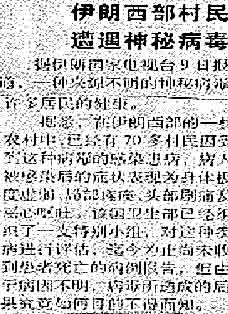 伊朗西部村民
遭遇神秘病毒
据伊朗国家电视台9日报
一种来源不明的神秘病
许多居民的健康。
据悉，在伊朗西部的一
农村中，已经有70多村民因受
到这种病毒的感染患病，病人
被感染后的症状表现为身体极
度虚弱、局部疼、头部剧痛及
恶心呕吐。该国卫生部已经组
织了一支特别小组，对这种类
病进行评估，迄今为止尚未收
到患者死亡的病例报告，但由
于病因不明，病毒所造成的后
果究竟如何目前不得而知。